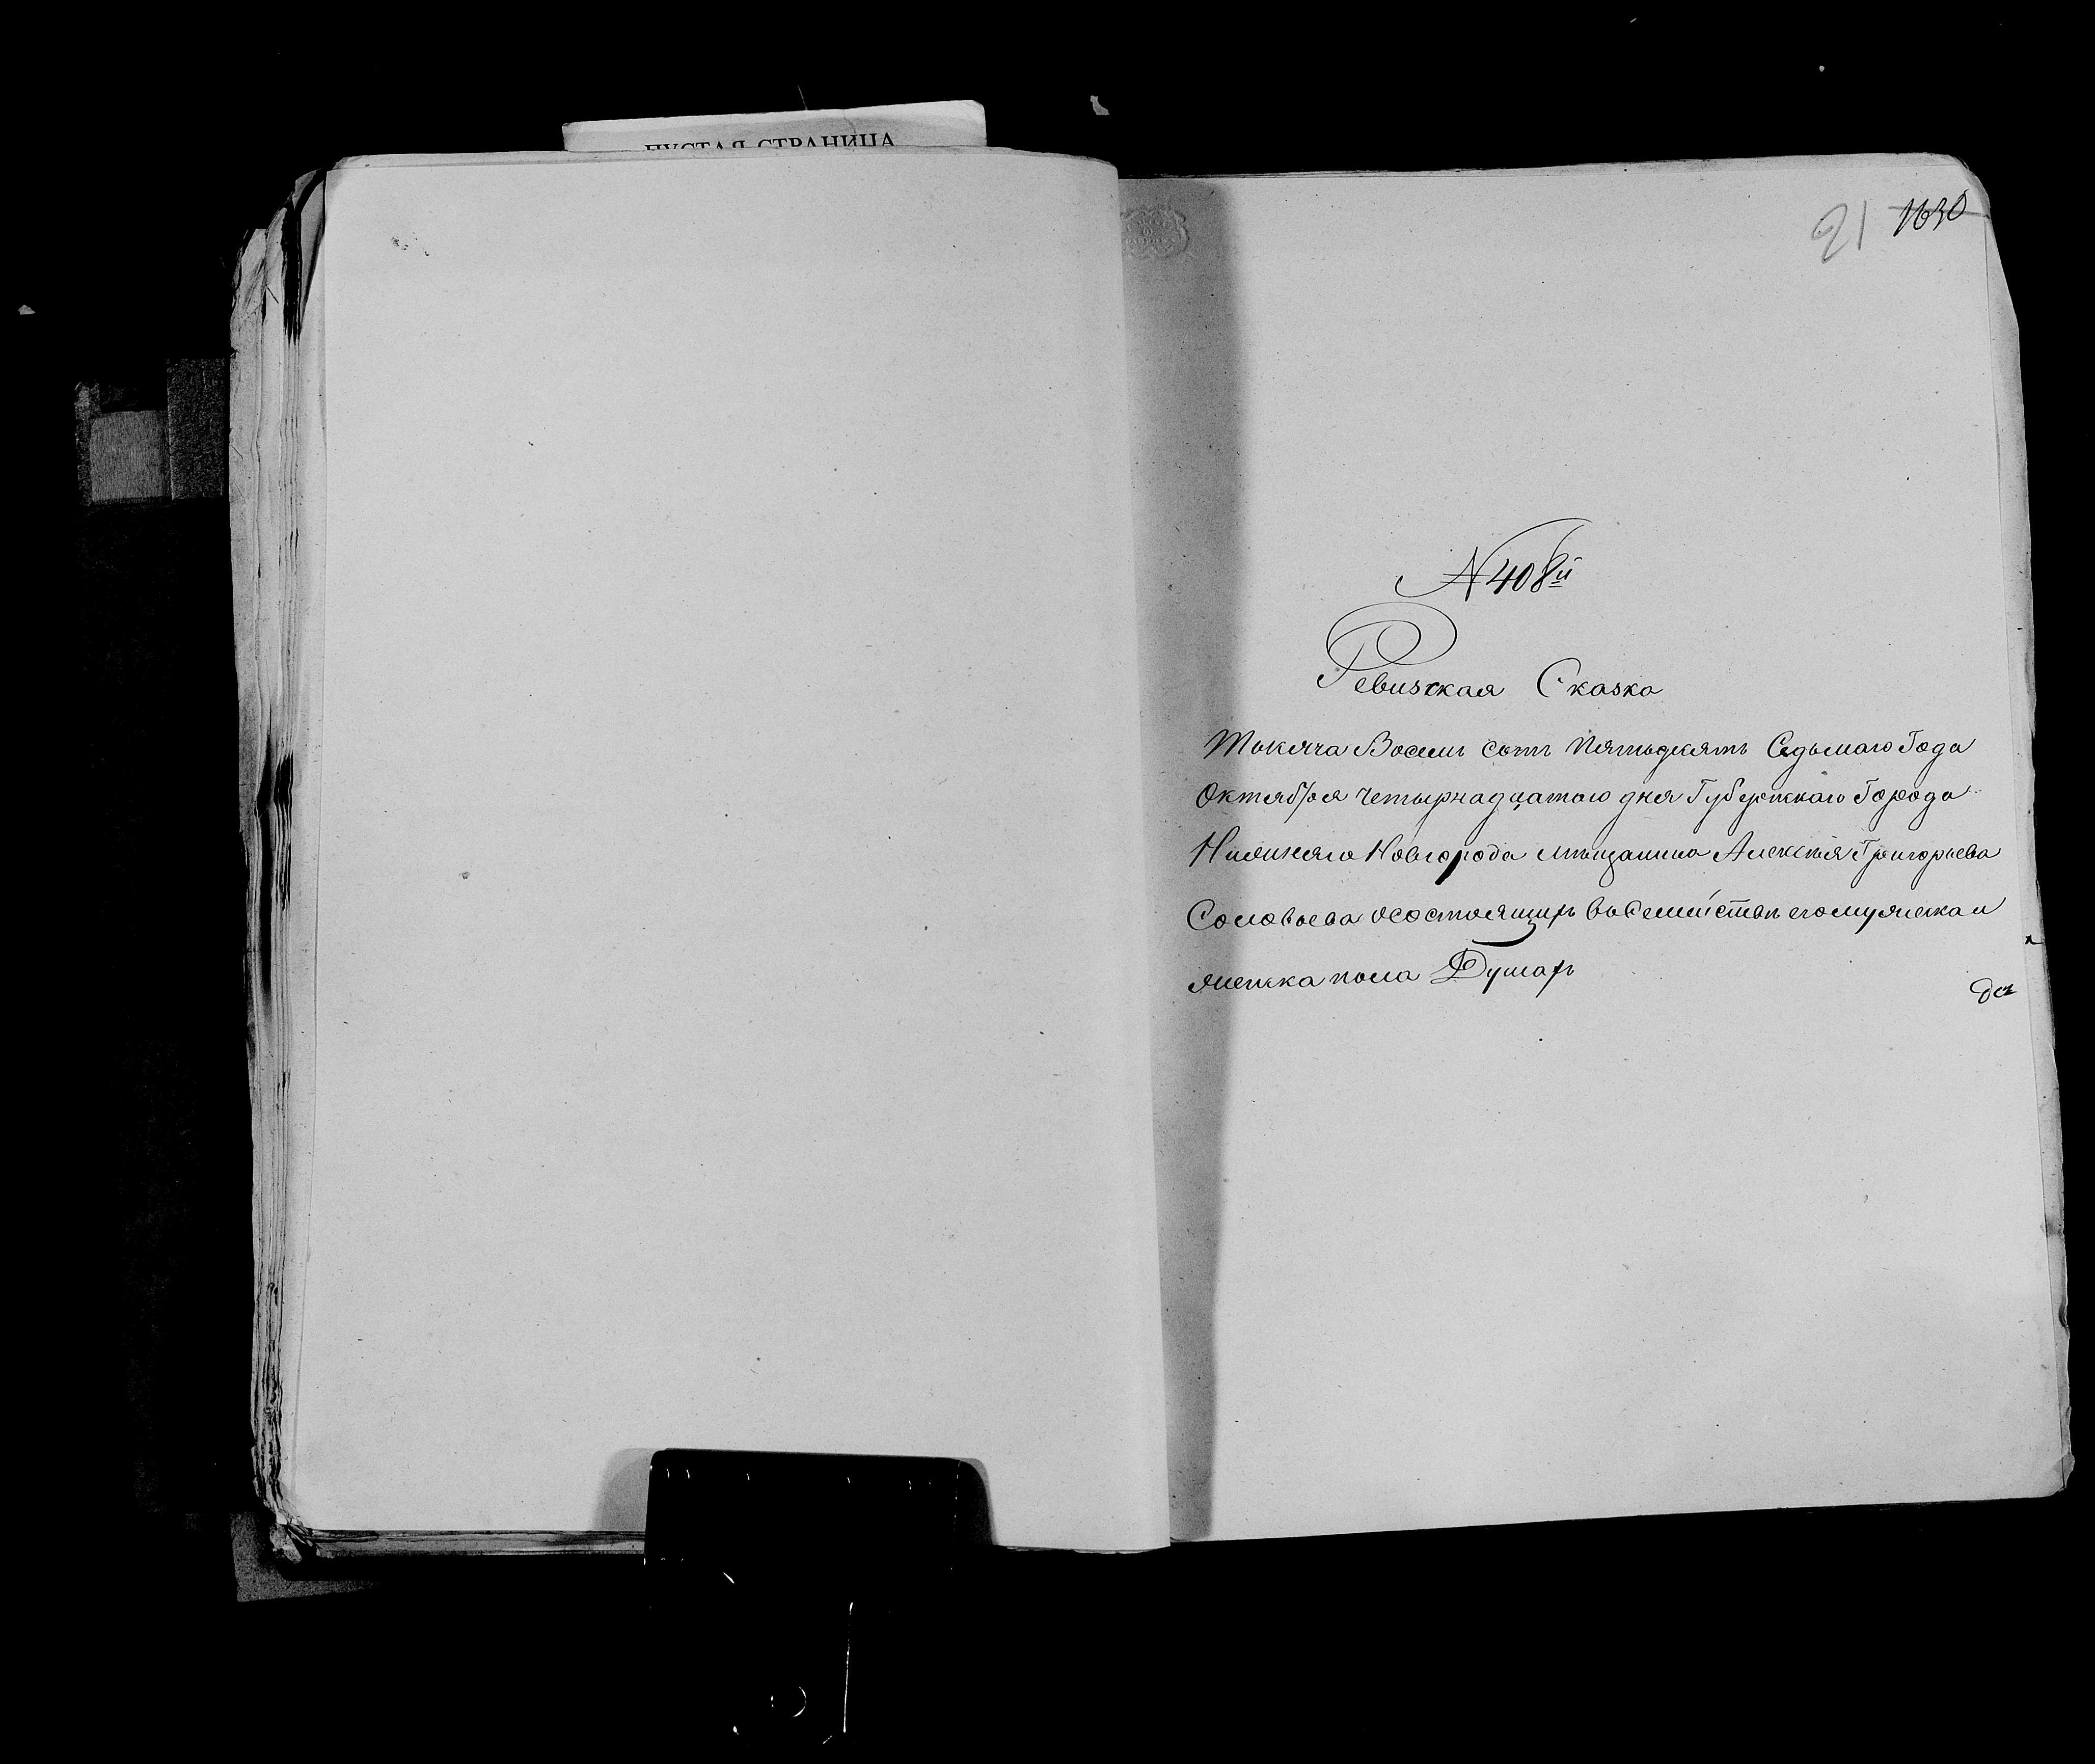 ПУСТАЯ СТРАНИЦА
91 1630
№ 408й
Ревизская Сказка
Тысяча Восемь сотъ пятьдесятъ Седьмаго Года
Октября четырнадцатаго дня Губернскаго Города
Нижняго Новгорода мѣщанина Алексѣя Григорьева
Соловьева о состоящихъ въ Семействѣ его мужеска и
женска пола Душахъ